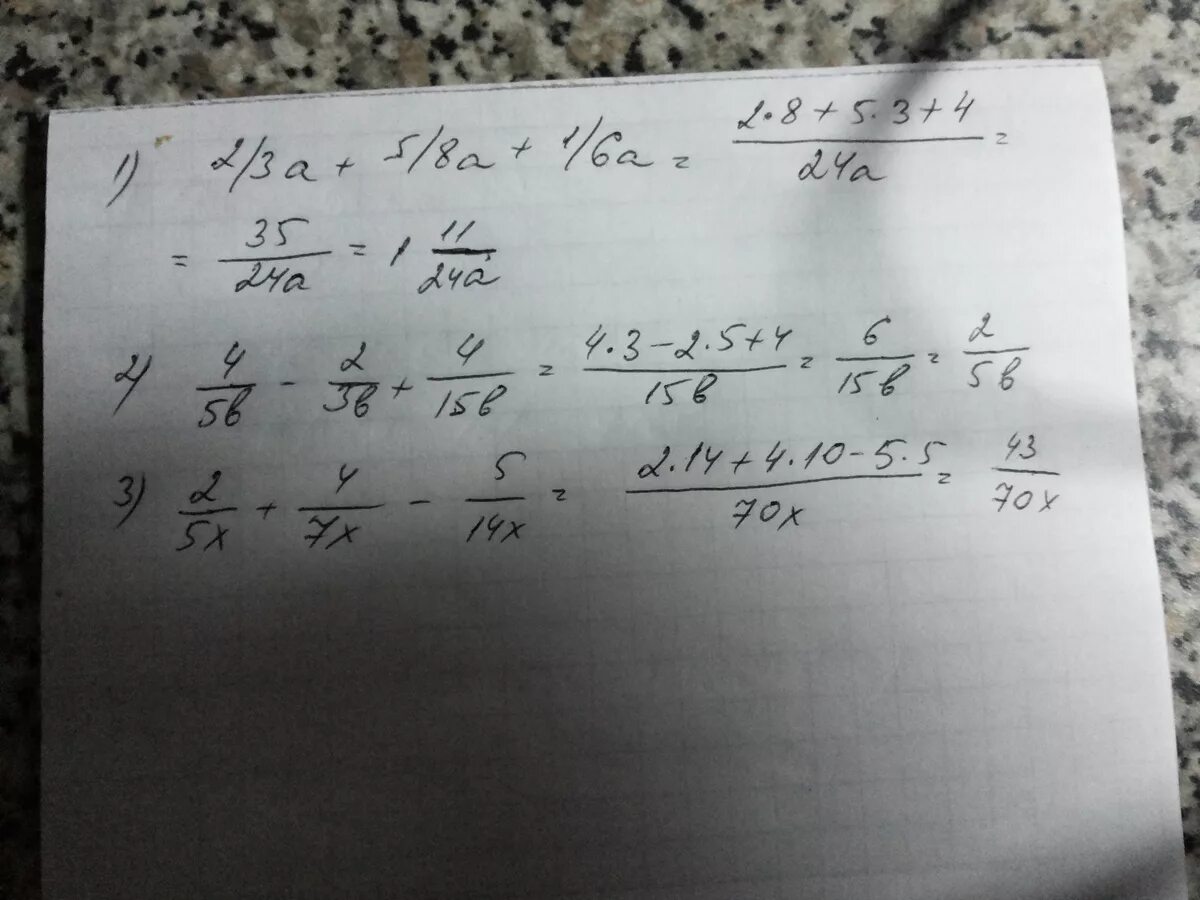 1) 2/3a + 5/8a + 1/6a = (2·8+5·3+4)/24a =
= 35/24a = 1 11/24a
2) 4/5b - 2/3b + 4/15b = (4·3-2·5+4)/15b = 6/15b = 2/5b
3) 2/5x + 4/7x - 5/14x = (2·14+4·10-5·5)/70x = 43/70x